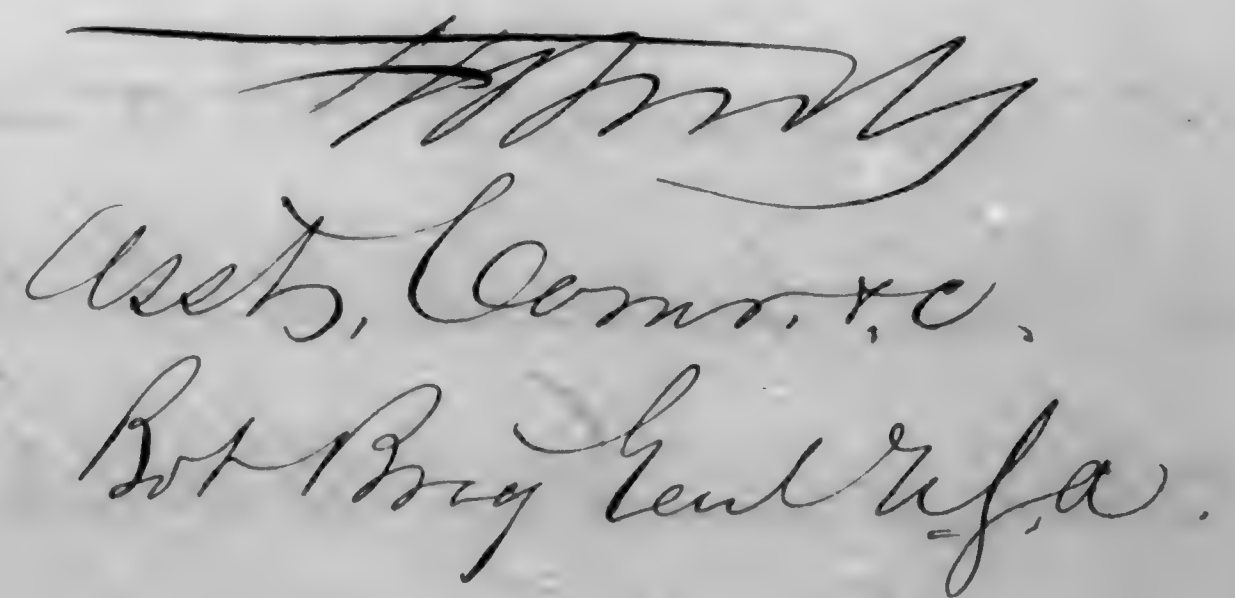 Asst, Comr. &c.
Bvt Brig Genl U.S.A.